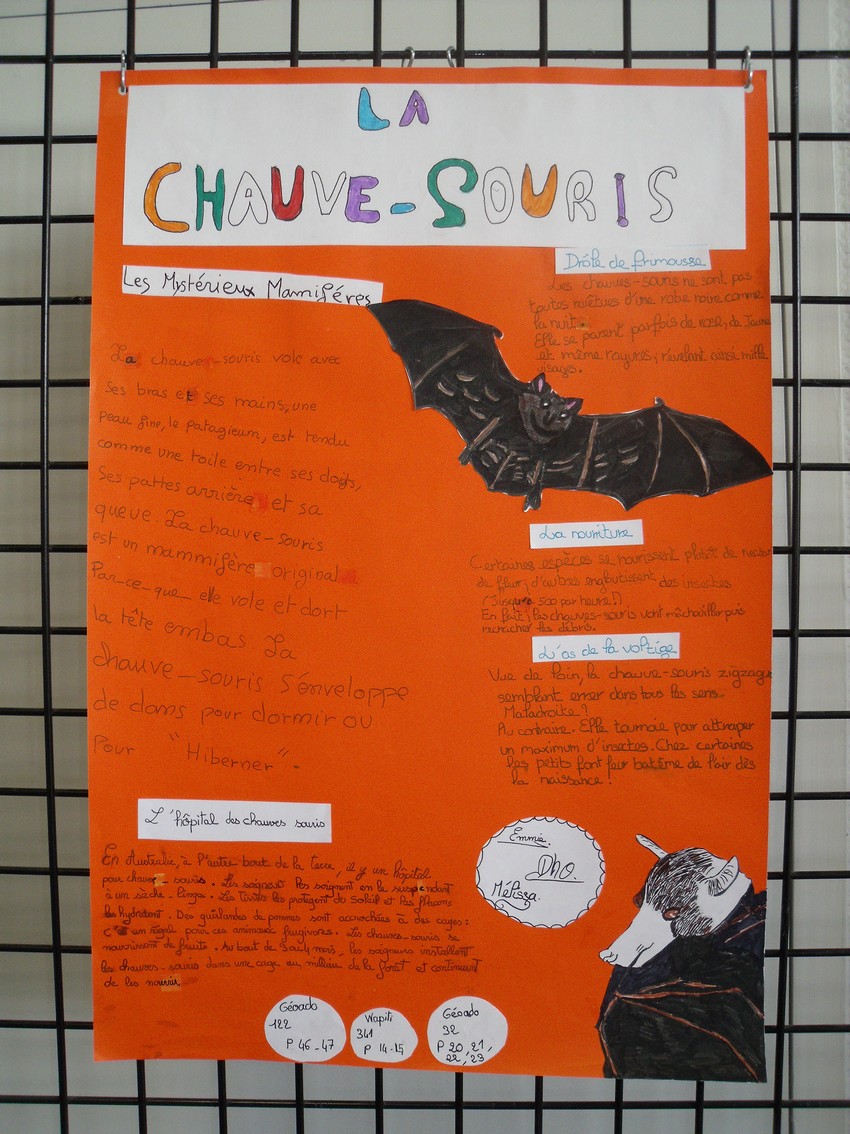 LA
CHAUVE-SOURIS
Les Mystérieux Mammiféres
La chauve-souris vole avec
ses bras et ses mains, une
peau fine, le patagieum, est tendu
comme une toile entre ses doigts,
Ses pattes arrière et sa
queue. La chauve-souris
est un mammifère original
Par-ce-que elle vole et dort
la tête embas La
chauve-souris s'enveloppe
de dans pour dormir ou
Pour "Hiberner".
Drôle de frimousse
Les chauves-souris ne sont pas
toutes revêtues d'une robe noire comme
la nuit.
Elle se parent parfois de rose, de Jaune
et même rayures, révelant ainsi mille
visages.
La nourriture
Certaines espèces se nourissent plutôt de nectar
de fleur, d'autres engloutissent des insectes
(Jusqu'a 500 par heure!)
En fait, les chauves-souris vont mâchouiller puis
recracher les débris.
L'as de la voltige
Vue de loin, la chauve-souris zigzague
semblant errer dans tous les sens.
Maladroite?
Au contraire. Elle tournoie pour attraper
un maximum d'insectes. Chez certaines
les petits font leur batême de l'air dès
la naissance!
L'hôpital des chauves souris
En Australie, à l'autre bout de la terre, il y un hôpital
pour chauve-souris. Les soignent en le suspendant
à un sèche-linge. Les protegent du soleil et les flacons
les hydratent. Des guirlandes de pommes sont accrochées à des cages:
un régal pour ces animaux frugivores. Les chauves-souris se
nourrissent de fruits. Au bout de 3ou4 mois, les soigneurs installent
les chauves-souris dans une cage au milieu de la foret et continuent
de les nourrir.
Emmie.
Dho.
Mélissa.
Géoado
122
P 46-47
Wapiti
341
P 14-15
Géoado
32
P 20, 21,
22, 23